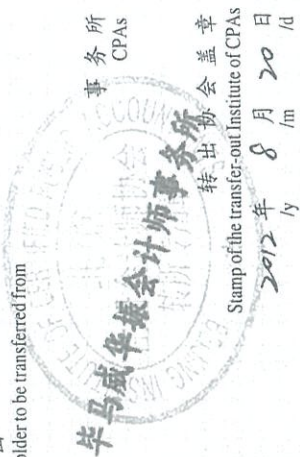 older to be transferred from
事务所
CPAs
毕马威华振会计师事务所
转出协会盖章
Stamp of the transfer-out Institute of CPAs
2012年 8月 20日
/y /m /d